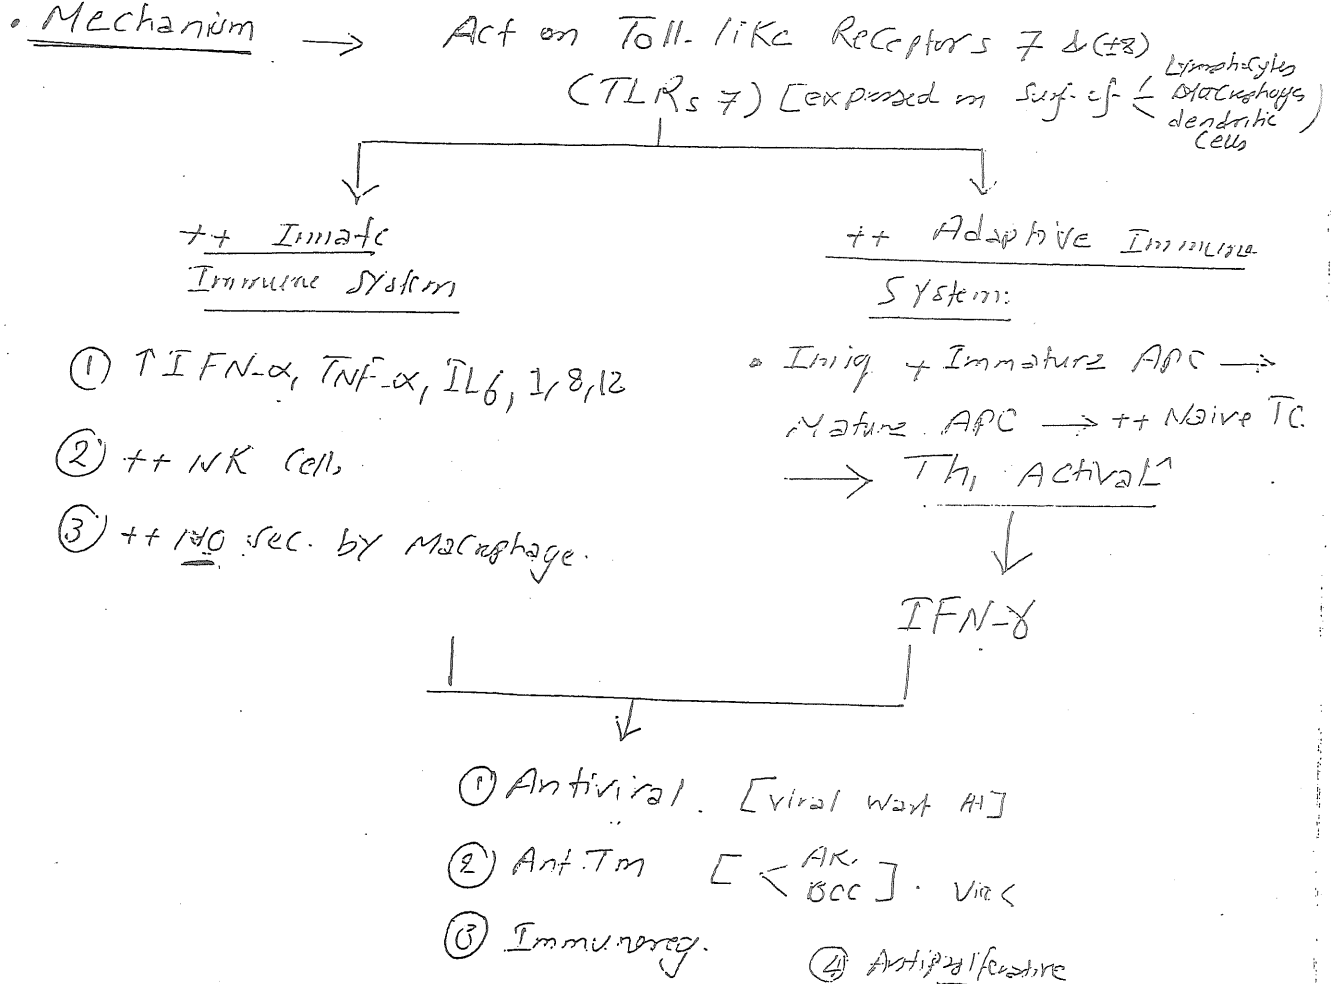 • Mechanism → Act on Toll-like Receptors 7 & (±8)
(TLRs 7) [expressed on Surf. of < Lymphocytes
Macrophages
dendritic
Cells )
++ Innate
Immune System
① ↑ IFN-α, TNF-α, IL6, 1, 8, 12
② ++ NK Cells
③ ++ NO sec. by Macrophage.
++ Adaptive Immune
System:
• Imiq + Immature APC →
Mature APC → ++ Naive Tc.
→ Th1 Activat^n
IFN-γ
① Antiviral. [viral wart]
② Ant.Tm [ < AK.
BCC ].
③ Immunoreg.
④ Antiproliferative